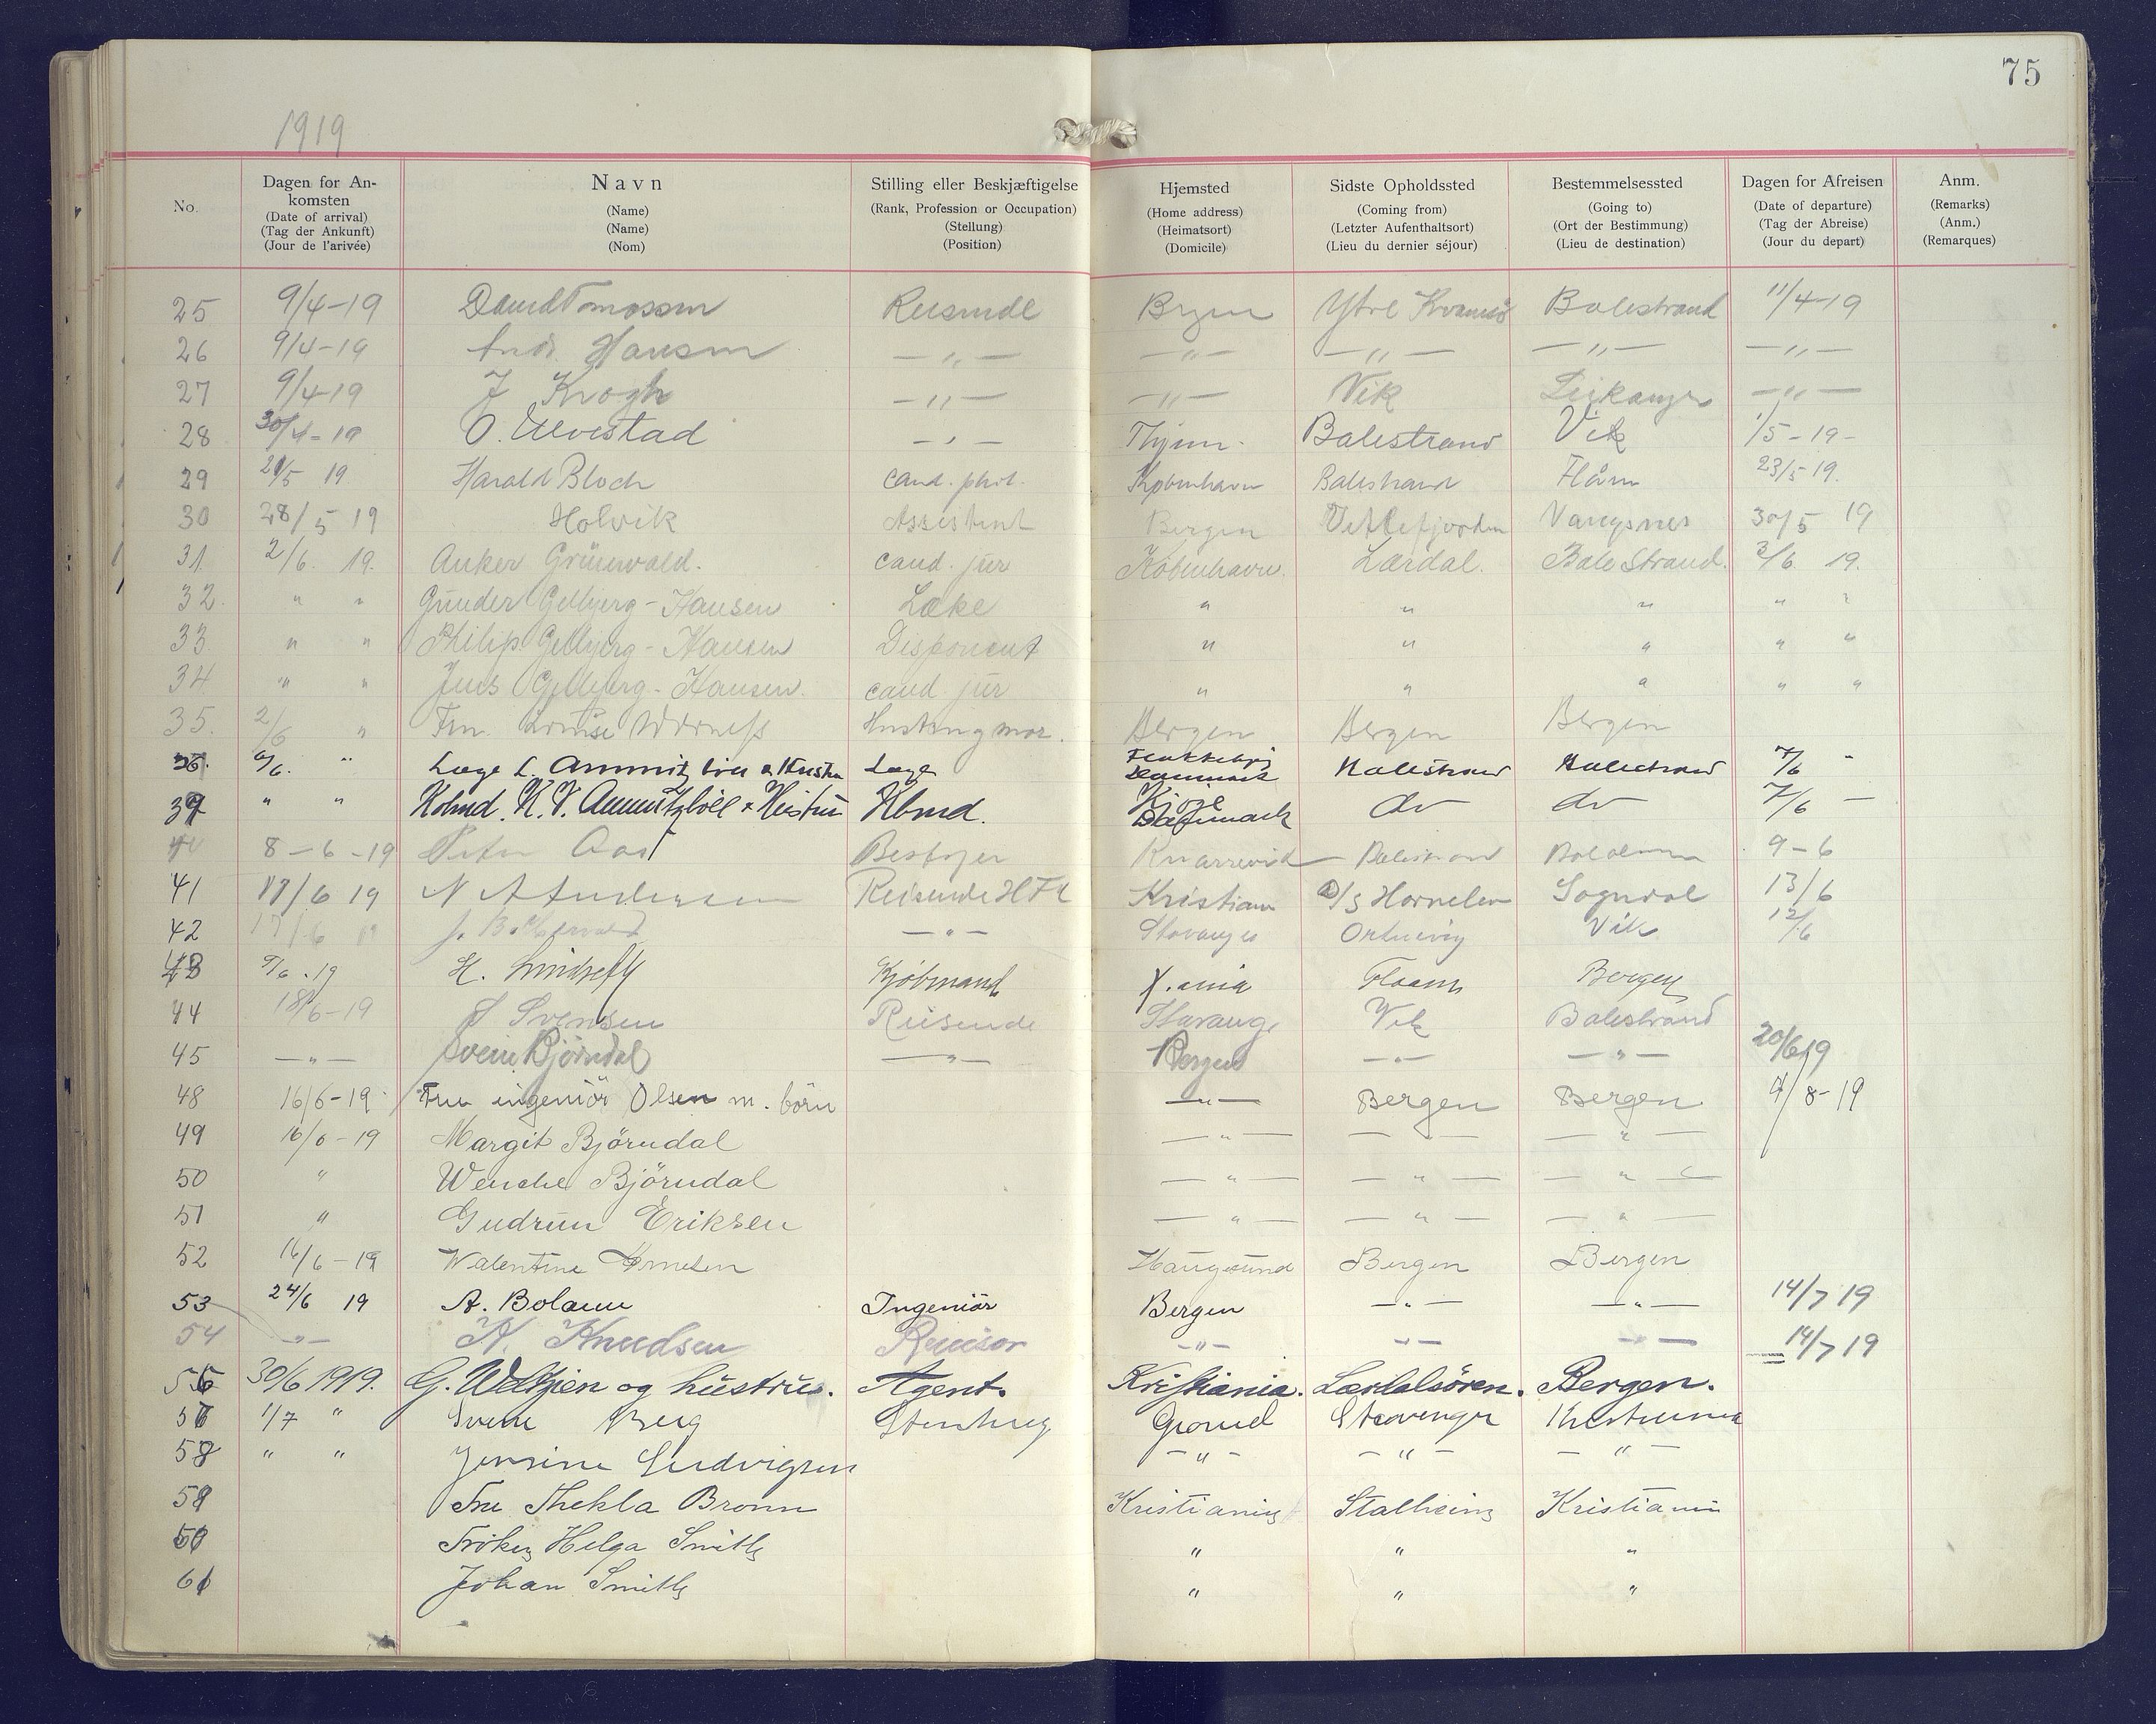 75
1919
No.
Dagen for Ankomsten (Date of arrival) (Tag der Ankunft) (Jour de l'arivée)
Navn (Name) (Name) (Nom)
Stilling eller Beskjæftigelse (Rank, Profession or Occupation) (Stellung) (Position)
Hjemsted (Home address) (Heimatsort) (Domicile)
Sidste Opholdssted (Coming from) (Letzter Aufenthaltsort) (Lieu du dernier séjour)
Bestemmelsessted (Going to) (Ort der Bestimmung) (Lieu de destination)
Dagen for Afreisen (Date of departure) (Tag der Abreise) (Jour du depart)
Anm. (Remarks) (Anm.) (Remarques)
25 9/4-19 Reisende Ytre Balestrand 11/4-19
26 9/4-19 Andr. Hansen —"— —"— —"— —"— —"—
27 9/4-19 J Krogh —"— —"— Vik Leikanger —"—
28 30/4-19 O. Ulvestad —"— Balestrand Vik 1/5-19-
29 21/5 19 Harald Bloch cand. phil. København Balestrand Flåm 23/5 19.
30 28/5 19 Holvik Assistent Bergen Vetlefjorden Vangsnes 30/5 19
31. 2/6. 19. Anker Grünwald. cand. jur København. Lærdal. Balestrand. 3/6 19.
32. " " Gunder Gelbjerg-Hansen Læke " " " " "
33. " " Philip Gelbjerg-Hansen Disponent " " " " "
34 " " Jens Gelbjerg-Hansen. cand. jur " " " " "
35. 2/6 " Bergen Bergen Bergen
36. 6/6. " Læge L. Ammitzböll & Hustru Læge Danmark Balestrand Balestrand 7/6 "
39 " " Kobmd. K. V. Ammitzböll & Hustru Kbmd. Kjöge Danmark do do 7/6 —
40 8-6-19 Peter Aas Bestyrer Knarrevik Balestrand 9-6
41 11/6 19 N A Andersen Reisende Kristian D/S Hornelen Sogndal 13/6
42 —"— Stavanger Ortnevig Vik 12/6
43 9/6.19 H. Kjöbmand X.ania Flaam Bergen
44 18/6-19 J Svensen Reisende Stavanger Vik Balestrand
45 —"— Svein Björndal —"— Bergen —"— —"— 20/6 19
48 16/6-19 Fru ingeniör Olsen m. börn —"— Bergen Bergen 4/8-19
49 16/6-19 Margit Björndal —"— —"— —"—
50 " Wenche Björndal —"— —"— —"—
51 " Gudrun Eriksen —"— —"— —"—
52 16/6-19 Valentine Arnesen Haugesund Bergen Bergen
53 24/6 19 A. Bolann Ingeniör Bergen —"— —"— 14/7 19
54 —"— A. Knudsen Revisor —"— —"— —"— 14/7 19
56 30/6 1919. G. Weltzien og hustru. Agent. Kristiania. Lærdalsören. Bergen.
57 1/7 " Berg Stavanger
58 " " Jensine Ludvigsen —"— —"— —"—
59 Fru Thekla Bronn Kristiania Stalheim Kristiania
60 Fröken Helga Smith " " "
61 Johan Smith " " "